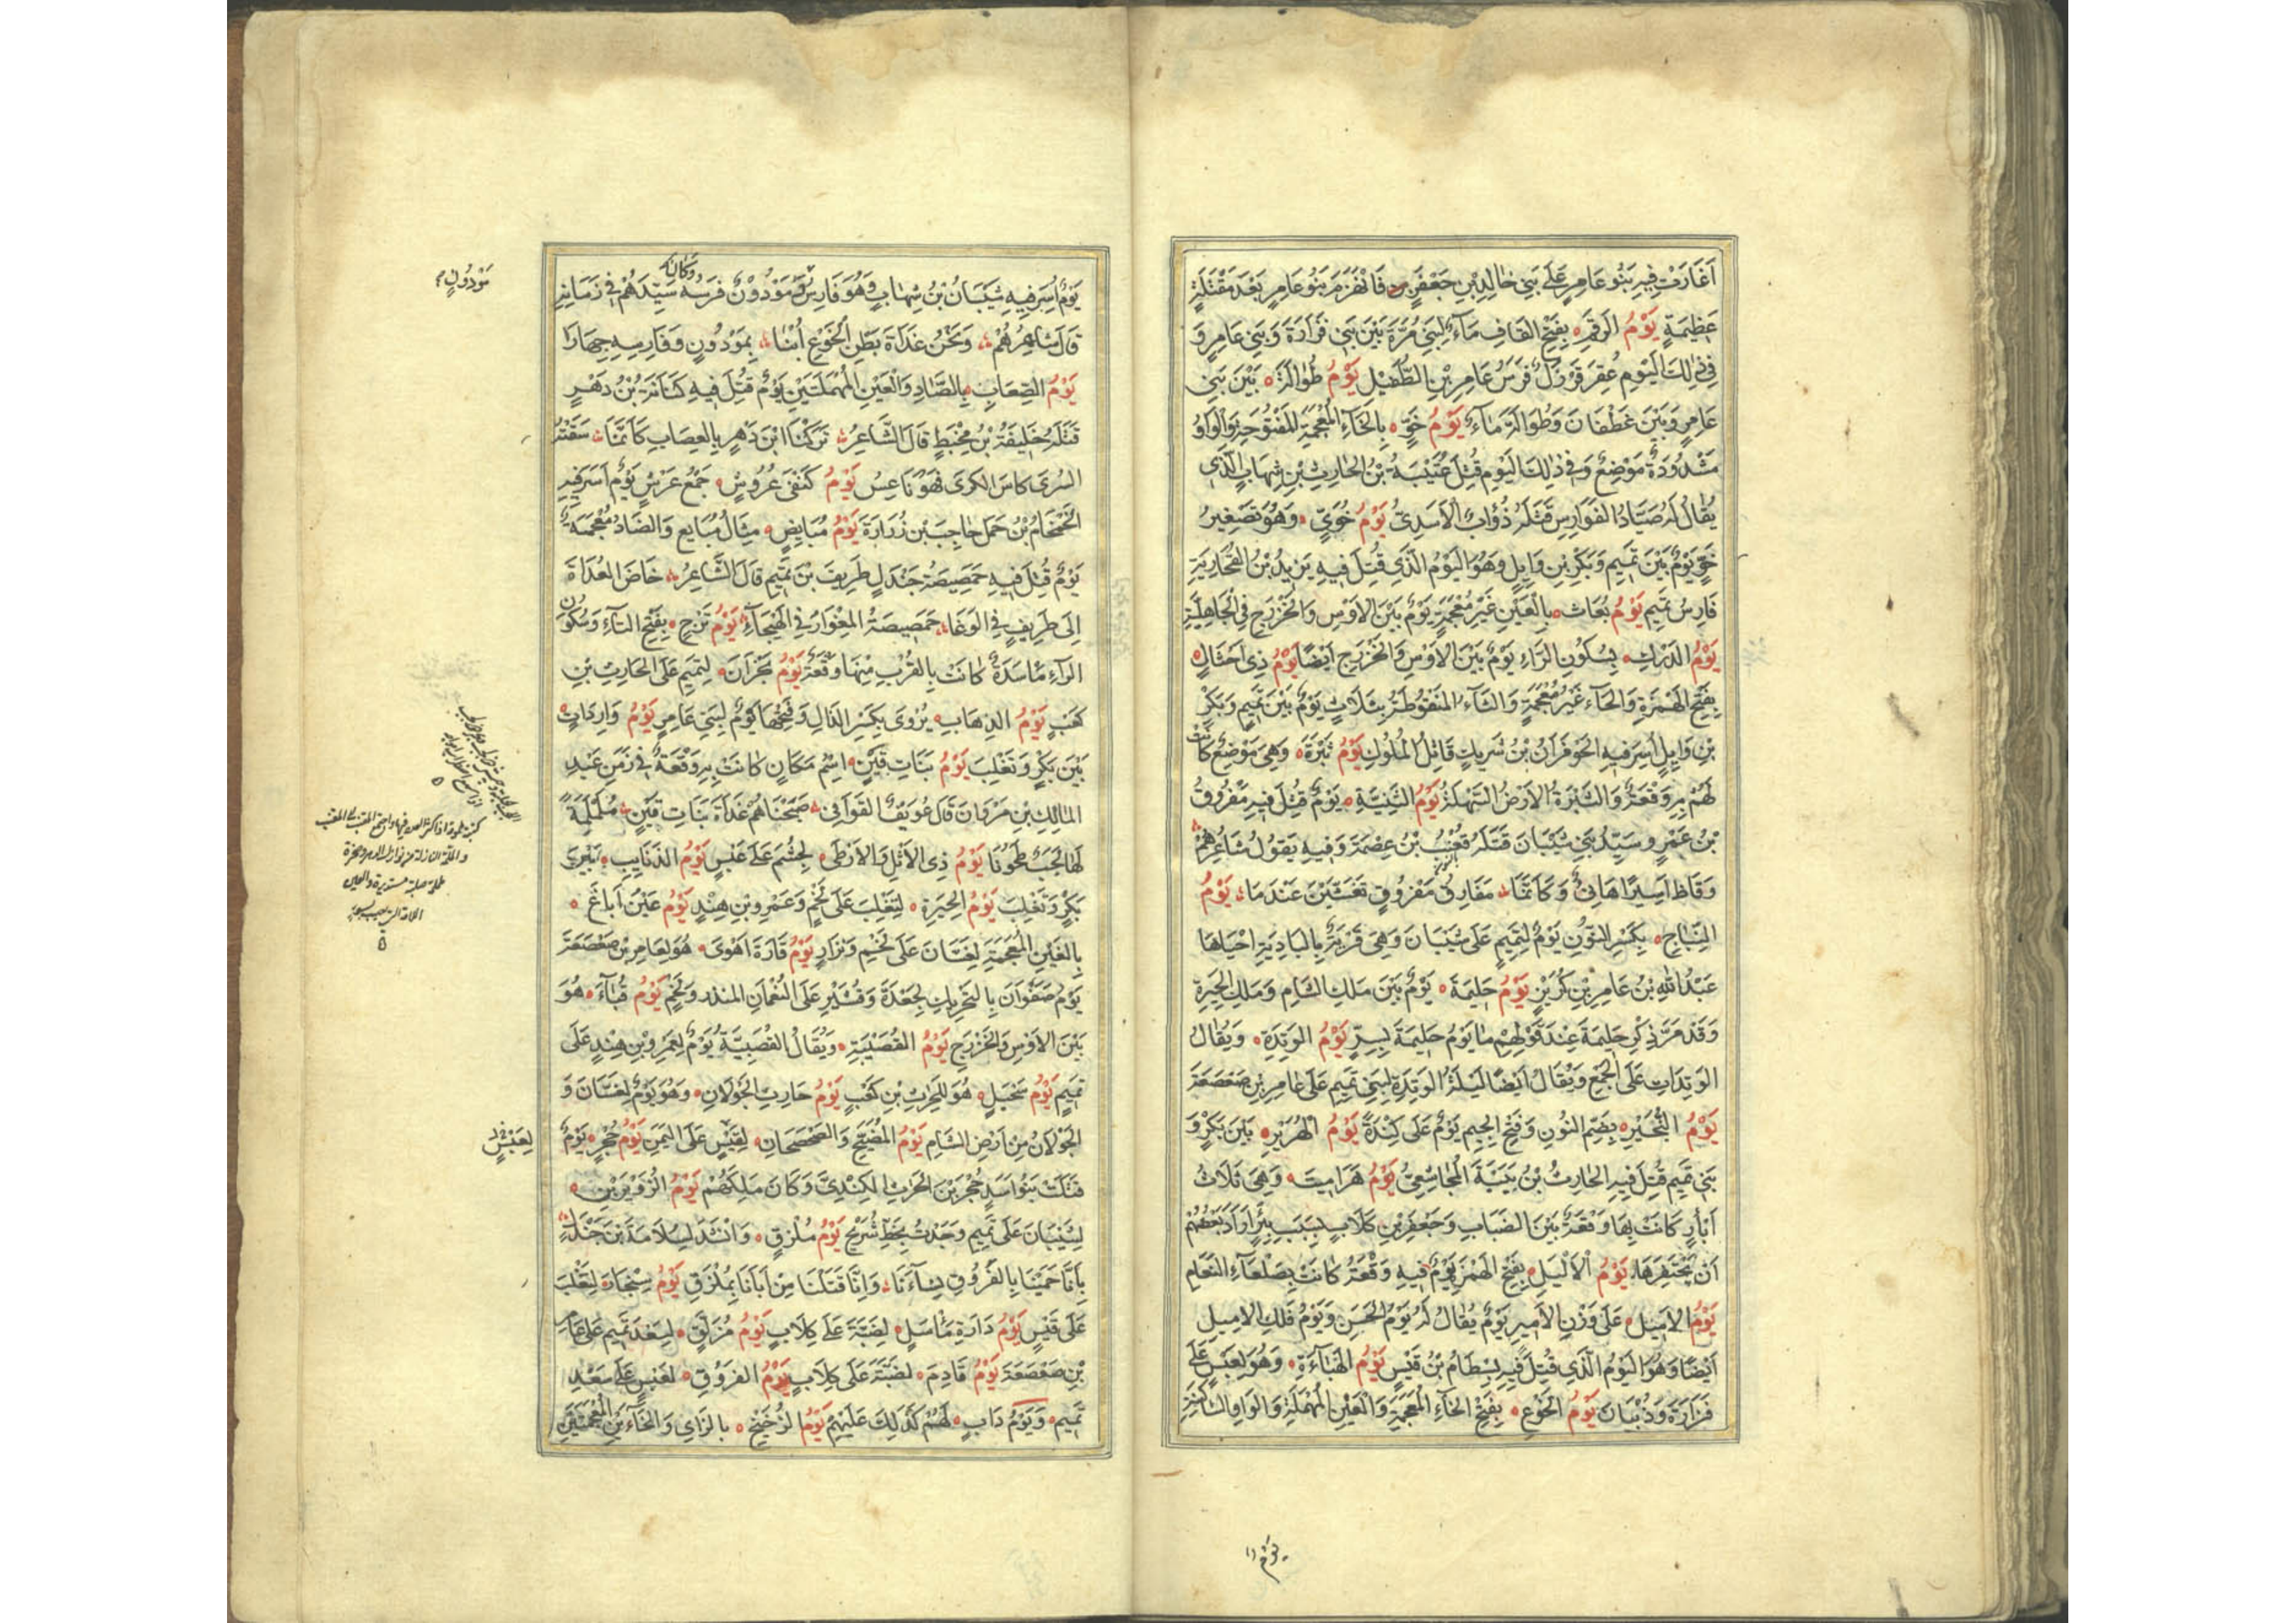 اَغَارَتْ فِيهِ بَنُو عَامِرٍ عَلَى بَنِي خَالِدِ بْنِ جَعْفَرٍ فَانْهَزَمَ بَنُو عَامِرٍ بَعْدَ مَقْتَلَةٍ
عَظِيمَةٍ يَوْمُ الرَّقَمِ بِفَتْحِ القَافِ مَاءٌ لِبَنِي مُرَّةَ بَيْنَ بَنِي فَزَارَةَ وَبَنِي عَامِرٍ وَ
فِي ذَلِكَ اليَوْمِ عُقِرَ قُرْزُلٌ فَرَسُ عَامِرِ بْنِ الطُّفَيْلِ يَوْمُ طُوَالَةَ بَيْنَ بَنِي
عَامِرٍ وَبَيْنَ غَطْفَانَ وَطُوَالَةُ مَاءٌ يَوْمُ خَوٍّ بِالْخَاءِ الْمُعْجَمَةِ المَفْتُوحَةِ وَالْوَاوُ
مَشْدُودَةٌ مَوْضِعٌ وَفِي ذٰلِكَ اليَوْمِ قُتِلَ عُتَيْبَةُ بْنُ الحَارِثِ بْنِ شِهَابٍ الَّذِي
يُقَالُ لَهُ صَيَّادُ الفَوَارِسِ قَتَلَهُ ذُؤَابٌ الْاَسَدِيُّ يَوْمُ خُوَيٍّ وَهُوَ تَصْغِيرُ
خَوٍّ يَوْمٌ بَيْنَ تَمِيمٍ وَبَكْرِ بْنِ وَايِلٍ وَهُوَ اليَوْمُ الَّذِي قُتِلَ فِيهِ يَزِيدُ بْنُ القُحَارِيَةِ
فَارِسُ تَمِيمٍ يَوْمُ بُعَاث بِالْعَيْنِ غَيْرِ مُعْجَمَةٍ يَوْمٌ بَيْنَ الاَوْسِ وَالْخَزْرَجِ فِي الْجَاهِلِيَّةِ
يَوْمُ الدَّرْكِ بِسُكُونِ الرَّاءِ يَوْمٌ بَيْنَ الاَوْسِ وَالْخَزْرَجِ اَيْضًا يَوْمُ ذِي اَحْثَالٍ
بِفَتْحِ الْهَمْزَةِ وَالْحَاءُ غَيْرُ مُعْجَمَةٍ وَالثَّاءُ المَنْقُوطَةُ بِثَلَاثٍ يَوْمٌ بَيْنَ تَمِيمٍ وَبَكْرِ
بْنِ وَايِلٍ اُسِرَ فِيهِ الْحَوْفَزَانُ بْنُ شَرِيكٍ قَاتِلُ المُلُوكِ يَوْمُ ثَبْرَةَ وَهِيَ مَوْضِعٌ كَانَتْ
لَهُمْ بِهِ وَقْعَةٌ وَالثَّبْرَةُ الاَرْضُ السَّهْلَةُ يَوْمُ الثَّنِيَّةِ يَوْمٌ قُتِلَ فِيهِ مَفْرُوقُ
بْنُ عَمْرٍو سَيِّدُ بَنِي شَيْبَانَ قَتَلَهُ قَعْنَبُ بْنُ عِصْمَةَ وَفِيهِ يَقُولُ شَاعِرُهُمْ
وَقَاظَ اَسِيرًا هَانِئٌ وَكَاَنَّمَا مَفَارِقُ مَفْرُوقٍ تَغَشَّيْنَ عَنْدَمَا يَوْمُ
النِّبَاجِ بِكَسْرِ النُّونِ يَوْمٌ لِتَمِيمٍ عَلَى شَيْبَانَ وَهِيَ قَرْيَةٌ بِالبَادِيَةِ اَحْيَاهَا
عَبْدُ اللهِ بْنُ عَامِرِ بْنِ كُرَيْزٍ يَوْمُ حَلِيمَةَ يَوْمٌ بَيْنَ مَلِكِ الشَّامِ وَمَلِكِ الْحِيرَةِ
وَقَدْ مَرَّ ذِكْرُ حَلِيمَةَ عِنْدَ قَوْلِهِمْ مَا يَوْمُ حَلِيمَةَ بِسِرٍّ يَوْمُ الوَتِدَةِ وَيُقَالُ
الوَتِدَاتِ عَلَى الْجَمْعِ وَيُقَالُ اَيْضًا لَيْلَةُ الوَتِدَةِ لِبَنِي تَمِيمٍ عَلَى عَامِرِ بْنِ صَعْصَعَةَ
يَوْمُ النُّجَيْرِ بِضَمِّ النُّونِ وَفَتْحِ الْجِيمِ يَوْمٌ عَلَى كِنْدَةَ يَوْمُ الْهُرَيْرِ بَيْنَ بَكْرٍ وَ
بَنِي تَمِيمٍ قُتِلَ فِيهِ الحَارِثُ بْنُ بَيْبَةَ الْمُجَاشِعِيُّ يَوْمُ هَرَامِيتَ وَهِيَ ثَلَاثُ
اَبْآرٍ كَانَتْ بِهَا وَقْعَةٌ بَيْنَ الضِّبَابِ وَجَعْفَرِ بْنِ كِلَابٍ بِسَبَبِ بِئْرٍ اَرَادَ بَعْضُهُمْ
اَنْ يَحْتَفِرَهَا يَوْمُ الْاَلْيَلِ بِفَتْحِ الْهَمْزِ يَوْمٌ فِيهِ وَقْعَةٌ كَانَتْ بِصَلْعَاءِ النَّعَامِ
يَوْمُ الاَمِيلِ عَلَى وَزْنِ الاَمِيرِ يَوْمٌ يُقَالُ لَهُ يَوْمُ الْحَسَنِ وَيَوْمُ فَلَكِ الاَمِيلِ
اَيْضًا وَهُوَ اليَوْمُ الَّذِي قُتِلَ فِيهِ بِسْطَامُ بْنُ قَيْسٍ يَوْمُ الْهَبَاءَةِ وَهُوَ لِعَبْسٍ عَلَى
فَزَارَةَ وَذُبْيَانَ يَوْمُ الْخَوْعِ بِفَتْحِ الْخَاءِ الْمُعْجَمَةِ وَالْعَيْنِ الْمُهْمَلَةِ وَالوَاوِ السَّاكِنَةِ
يَوْمٌ
وَكَانَ
يَوْمٌ اُسِرَ فِيهِ شَيْبَانُ بْنُ شِهَابٍ وَهُوَ فَارِسُ مَوْدُونٍ وَمَوْدُونٌ فَرَسُهُ سَيِّدَهُمْ فِي زَمَانِهِ
قَالَ شَاعِرُهُمْ وَنَحْنُ غَدَاةَ بَطْنِ الْخَوْعِ اُبْنَا بِمَوْدُونٍ وَفَارِسِهِ جِهَارًا
يَوْمُ الصِّعَابِ بِالصَّادِ وَالْعَيْنِ الْمُهْمَلَتَيْنِ يَوْمٌ قُتِلَ فِيهِ كَنَانَةُ بْنُ دَهْرٍ
قَتَلَهُ خَلِيفَةُ بْنُ مِخْبَطٍ قَالَ الشَّاعِرُ تَرَكْنَا ابْنَ دَهْرٍ بِالصِعَابِ كَاَنَّمَا سَقَتْهُ
السُّرَى كَاسَ الكَرَى فَهْوَ نَاعِسُ يَوْمُ كَنَفَى عُرُوشٍ جَمْعُ عَرْشٍ يَوْمٌ اَسَرَ فِيهِ
الْخَمْخَامُ بْنُ حَمَلٍ حَاجِبَ بْنَ زُرَارَةَ يَوْمُ مُبَايِضٍ مِثَالُ مُبَايِعٍ وَالضَّادُ مُعْجَمَةٌ
يَوْمٌ قَتَلَ فِيهِ حَمَصِيصَةُ جَنْدَلٍ طَرِيفَ بْنَ تَمِيمٍ قَالَ الشَّاعِرُ خَاضَ العُدَاةَ
اِلَى طَرِيفٍ فِي الوَغَا حَمَصِيصَةُ المِغْوَارُ فِي الْهَيْجَاءِ يَوْمُ تَرْجٍ بِفَتْحِ التَّاءِ وَسُكُونِ
الرَّاءِ مَاْسَدَةٌ كَانَتْ بِالقُرْبِ مِنْهَا وَقْعَةٌ يَوْمُ نَجْرَانَ لِتَمِيمٍ عَلَى الحَارِثِ بْنِ
كَعْبٍ يَوْمُ الذِّهَابِ يُرْوَى بِكَسْرِ الذَّالِ وَفَتْحِهَا يَوْمٌ لِبَنِي عَامِرٍ يَوْمُ وَارِدَاتٍ
بَيْنَ بَكْرٍ وَتَغْلِبَ يَوْمُ بَنَاتِ قَيْنٍ اسْمُ مَكَانٍ كَانَتْ بِهِ وَقْعَةٌ فِي زَمَنِ عَبْدِ
المَالِكِ بْنِ مَرْوَانَ قَالَ عُوَيْفُ القَوَافِي صَبَحْنَاهُمْ غَدَاةَ بَنَاتِ قَيْنٍ مُلَمْلَمَةً
لَهَا لَجَبٌ طَحُونَا يَوْمُ ذِي الاَثْلِ وَالاَرْطَى لِجُشَمَ عَلَى عَبْسٍ يَوْمُ الذَّنَايِبِ بَيْنَ
بَكْرٍ وَتَغْلِبَ يَوْمُ الحِيَرَةِ لِتَغْلِبَ عَلَى لَخْمٍ وَعَمْرِو بْنِ هِنْدٍ يَوْمُ عَيْنِ اُبَاغَ
بِالغَيْنِ الْمُعْجَمَةِ لِغَسَّانَ عَلَى لَخْمٍ وَنِزَارٍ يَوْمُ قَارَةِ اَهْوَى هُوَ لِعَامِرِ بْنِ صَعْصَعَةَ
يَوْمُ صَفْوَانَ لِجَعْدَةَ وَقُشَيْرٍ عَلَى النُّعْمَانِ المنذر وَلَخْمٍ يَوْمُ قُبَاءَ هُوَ
بَيْنَ الاَوْسِ وَالْخَزْرَجِ يَوْمُ القُصَيْبَةِ وَيُقَالُ القُصَيْبَةُ يَوْمٌ لِعَمْرِو بْنِ هِنْدٍ عَلَى
تَمِيمٍ يَوْمُ سَحْبَلٍ هُوَ لِلْحَرْثِ بْنِ كَعْبٍ يَوْمُ حَارِثِ الجَوْلَانِ وَهُوَ يَوْمٌ لِغَسَّانَ وَ
الجَوْلَانُ مِنْ اَرْضِ الشَّامِ يَوْمُ المُضَيَّحِ وَالصَّحْصَحَانِ لِقَيْسٍ عَلَى اليَمَنِ يَوْمُ حُجْرٍ يَوْمٌ
قَتَلَتْ بَنُو اَسَدٍ حُجْرَ بْنَ الحَرْثِ الكِنْدِيَّ وَكَانَ مَلِكَهُمْ يَوْمُ الزُّوَيْرَيْنِ
لِشَيْبَانَ عَلَى تَمِيمٍ وَجَدْتُ بِخَطِّ شُرَيْحٍ يَوْمُ مُلْزِقٍ وَاَنْشَدَ لِسَلَامَةَ بْنِ جَنْدَلٍ
بِاَنَّا حَمَيْنَا بِالفَرُوقِ نِسَاءَنَا وَاِنَّا قَتَلْنَا مِنْ اَبَانَا بِمُلْزَقِ يَوْمُ سِنْجَارَ لِتَغْلِبَ
عَلَى قَيْسٍ يَوْمُ دَارَةِ مَاْسَلٍ لِضَبَّةَ عَلَى كِلَابٍ يَوْمُ مُزْلَقٍ لِسَعْدِ تَمِيمٍ عَلَى عَامِرِ
بْنِ صَعْصَعَةَ يَوْمُ قَادِمٍ لِضَبَّةَ عَلَى كِلَابٍ يَوْمُ الفَرُوقِ لِعَبْسٍ عَلَى سَعْدِ
تَمِيمٍ وَيَوْمُ دَابٍ لَهُمْ كَذَلِكَ عَلَيْهِمْ يَوْمُ الزُّخَيْخِ بِالزَّايِ وَالْخَاءَيْنِ الْمُعْجَمَتَيْنِ
مَوْدُونٍ
لِعَبْسٍ